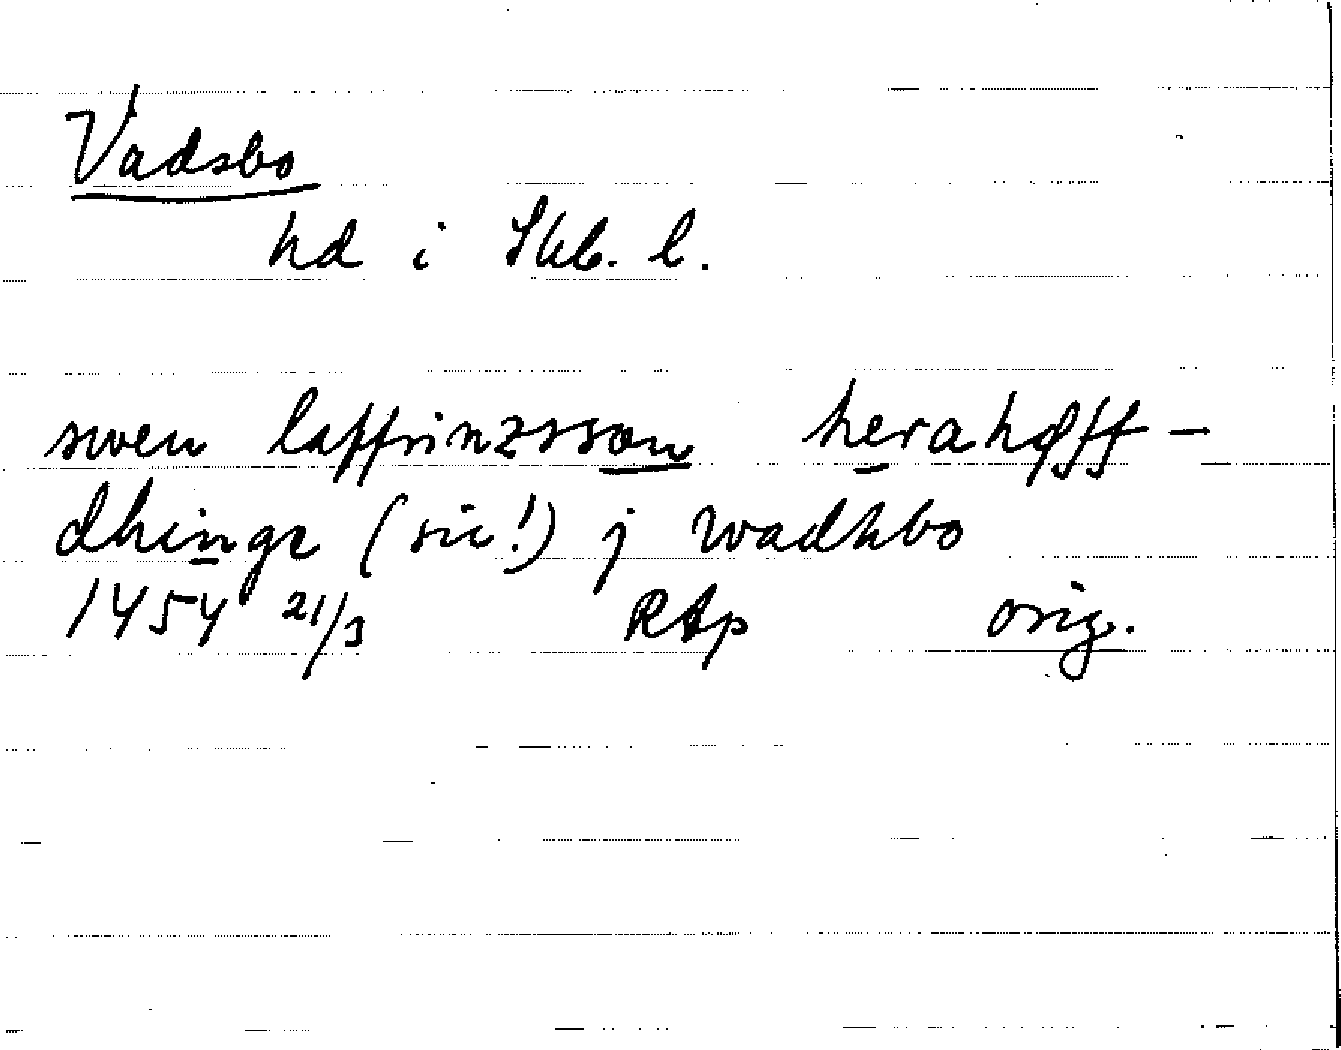 Vadsbo
hd i Skb. l.
swen laffrinzsson herahøff-
dhinge (sic!) j wadhbo
1454 21/3 RAp orig.